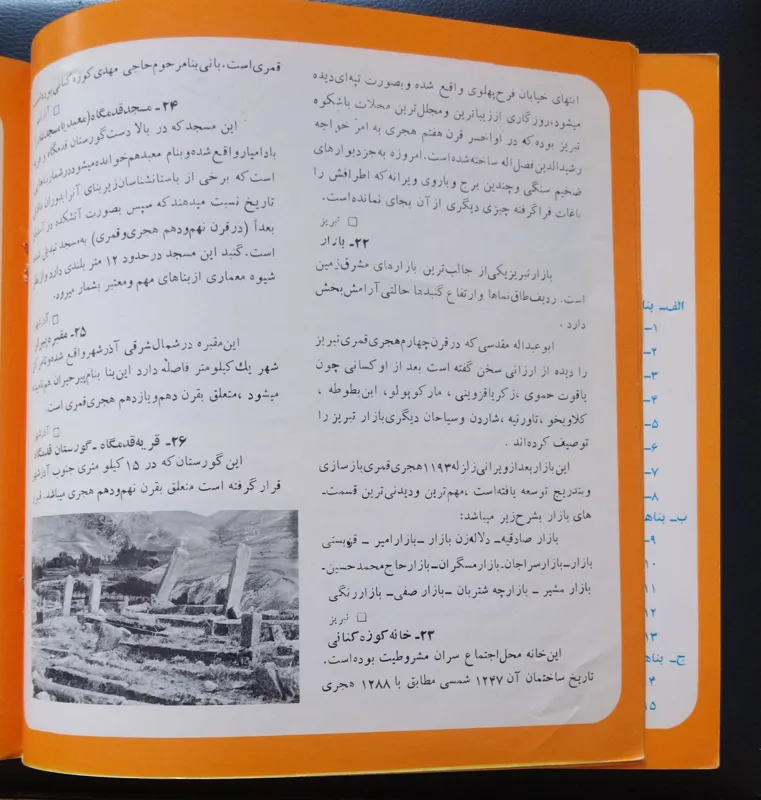 انتهای خیابان فرح‌پهلوی واقع شده و بصورت تپه‌ای دیده
میشود، روزگاری از زیباترین و مجلل‌ترین محلات باشکوه
تبریز بوده که در اواخر قرن هفتم هجری به امر خواجه
رشیدالدین فضل‌اله ساخته‌شده‌است. امروزه به‌جز دیوارهای
ضخیم سنگی و چندین برج و باروی ویرانه که اطرافش را
باغات فراگرفته چیزی دیگری از آن بجای نمانده‌است.
□ تبریز
۲۲ـ بازار
بازار تبریز یکی از جالب‌ترین بازارهای مشرق‌زمین
است. ردیف طاق‌نماها و ارتفاع گنبدها حالتی آرامش‌بخش
دارد.
ابوعبداله مقدسی که در قرن چهارم هجری قمری تبریز
را دیده از ارزانی سخن گفته است بعد از او کسانی چون
یاقوت حموی، زکریا قزوینی، مارکوپولو، ابن‌بطوطه،
کلاویخو، تاورنیه، شاردن و سیاحان دیگری بازار تبریز را
توصیف کرده‌اند.
این بازار بعد از ویرانی زلزله ۱۱۹۳ هجری قمری بازسازی
و بتدریج توسعه یافته‌است، مهم‌ترین و دیدنی‌ترین قسمت‌ـ
های بازار بشرح زیر میباشد:
بازار صادقیه‌ـ دلاله‌زن بازار ـ بازار امیر ـ قیزبستی
بازار ـ بازار سراجان. بازار مسگران ـ بازار حاج محمدحسین‌ـ
بازار مشیر ـ بازارچه شتربان ـ بازار صفی ـ بازار رنگی
□ تبریز
۲۳ـ خانه کوزه‌کنانی
این‌خانه محل اجتماع سران مشروطیت بوده‌است.
تاریخ ساختمان آن ۱۲۴۷ شمسی مطابق با ۱۲۸۸ هجری
قمری است. بانی بنا مرحوم حاجی مهدی کوزه‌کنانی بوده
□
۲۴ـ مسجد قدمگاه (معبد یا مسجد
این مسجد که در بالا دست گورستان قدمگاه و
بادامیار واقع شده و بنام معبد هم خوانده میشود در شمار بناهایی
است که برخی از باستانشناسان زیربنای آنرا بدوران
تاریخ نسبت میدهند که سپس بصورت آتشکده در
بعداً (در قرن نهم و دهم هجری و قمری) به مسجد تبدیل
است. گنبد این مسجد در حدود ۱۲ متر بلندی دارد و از
شیوه معماری از بناهای مهم و معتبر بشمار میرود.
□ آذرشهر
۲۵ـ مقبره پیر
این مقبره در شمال شرقی آذرشهر واقع شده و تا
شهر یك کیلومتر فاصله دارد این بنا بنام پیرحیران هم نامیده
میشود، متعلق بقرن دهم و یازدهم هجری قمری است.
□ آذرشهر
۲۶ـ قریه قدمگاه ـ گورستان قدمگاه
این گورستان که در ۱۵ کیلو متری جنوب آذرشهر
قرار گرفته است متعلق بقرن نهم و دهم هجری میباشد.
الف‌ـ
۱ـ
۲ـ
۳ـ
۴ـ
۵ـ
۶ـ
۷ـ
۸ـ
ب‌ـ
۹ـ
۱۰
۱۱
۱۲
۱۳
ج‌ـ
۱۵